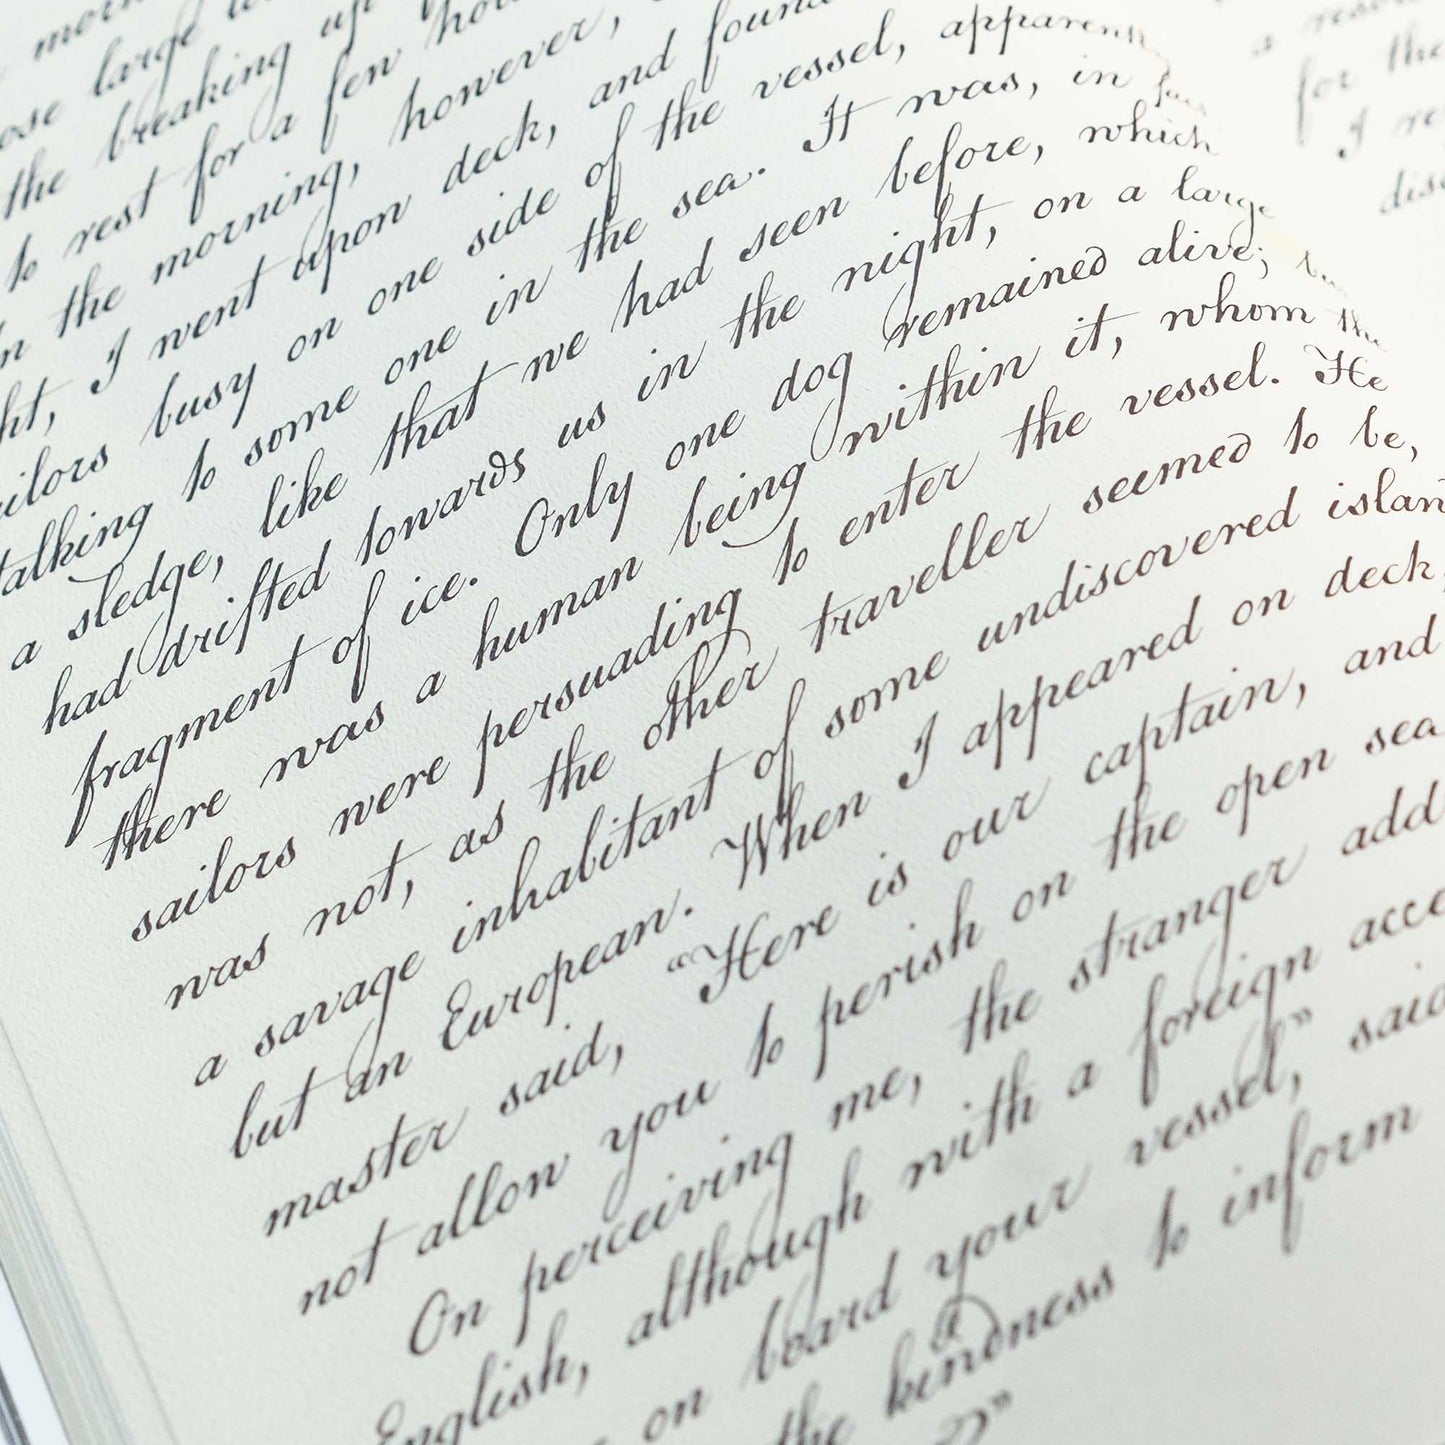 the breaking up
to rest for a few
the morning, however,
I went upon deck, and found
sailors busy on one side of the vessel,
talking to some one in the sea. It was, in
a sledge, like that we had seen before, which
had drifted towards us in the night, on a large
fragment of ice. Only one dog remained alive;
there was a human being within it, whom the
sailors were persuading to enter the vessel. He
was not, as the other traveller seemed to be,
a savage inhabitant of some undiscovered islan
but an European. When I appeared on deck,
master said, “Here is our captain, and
not allow you to perish on the open sea
On perceiving me, the stranger add
English, although with a foreign acce
on board your vessel,” said
the kindness to inform
for the
I re
disc